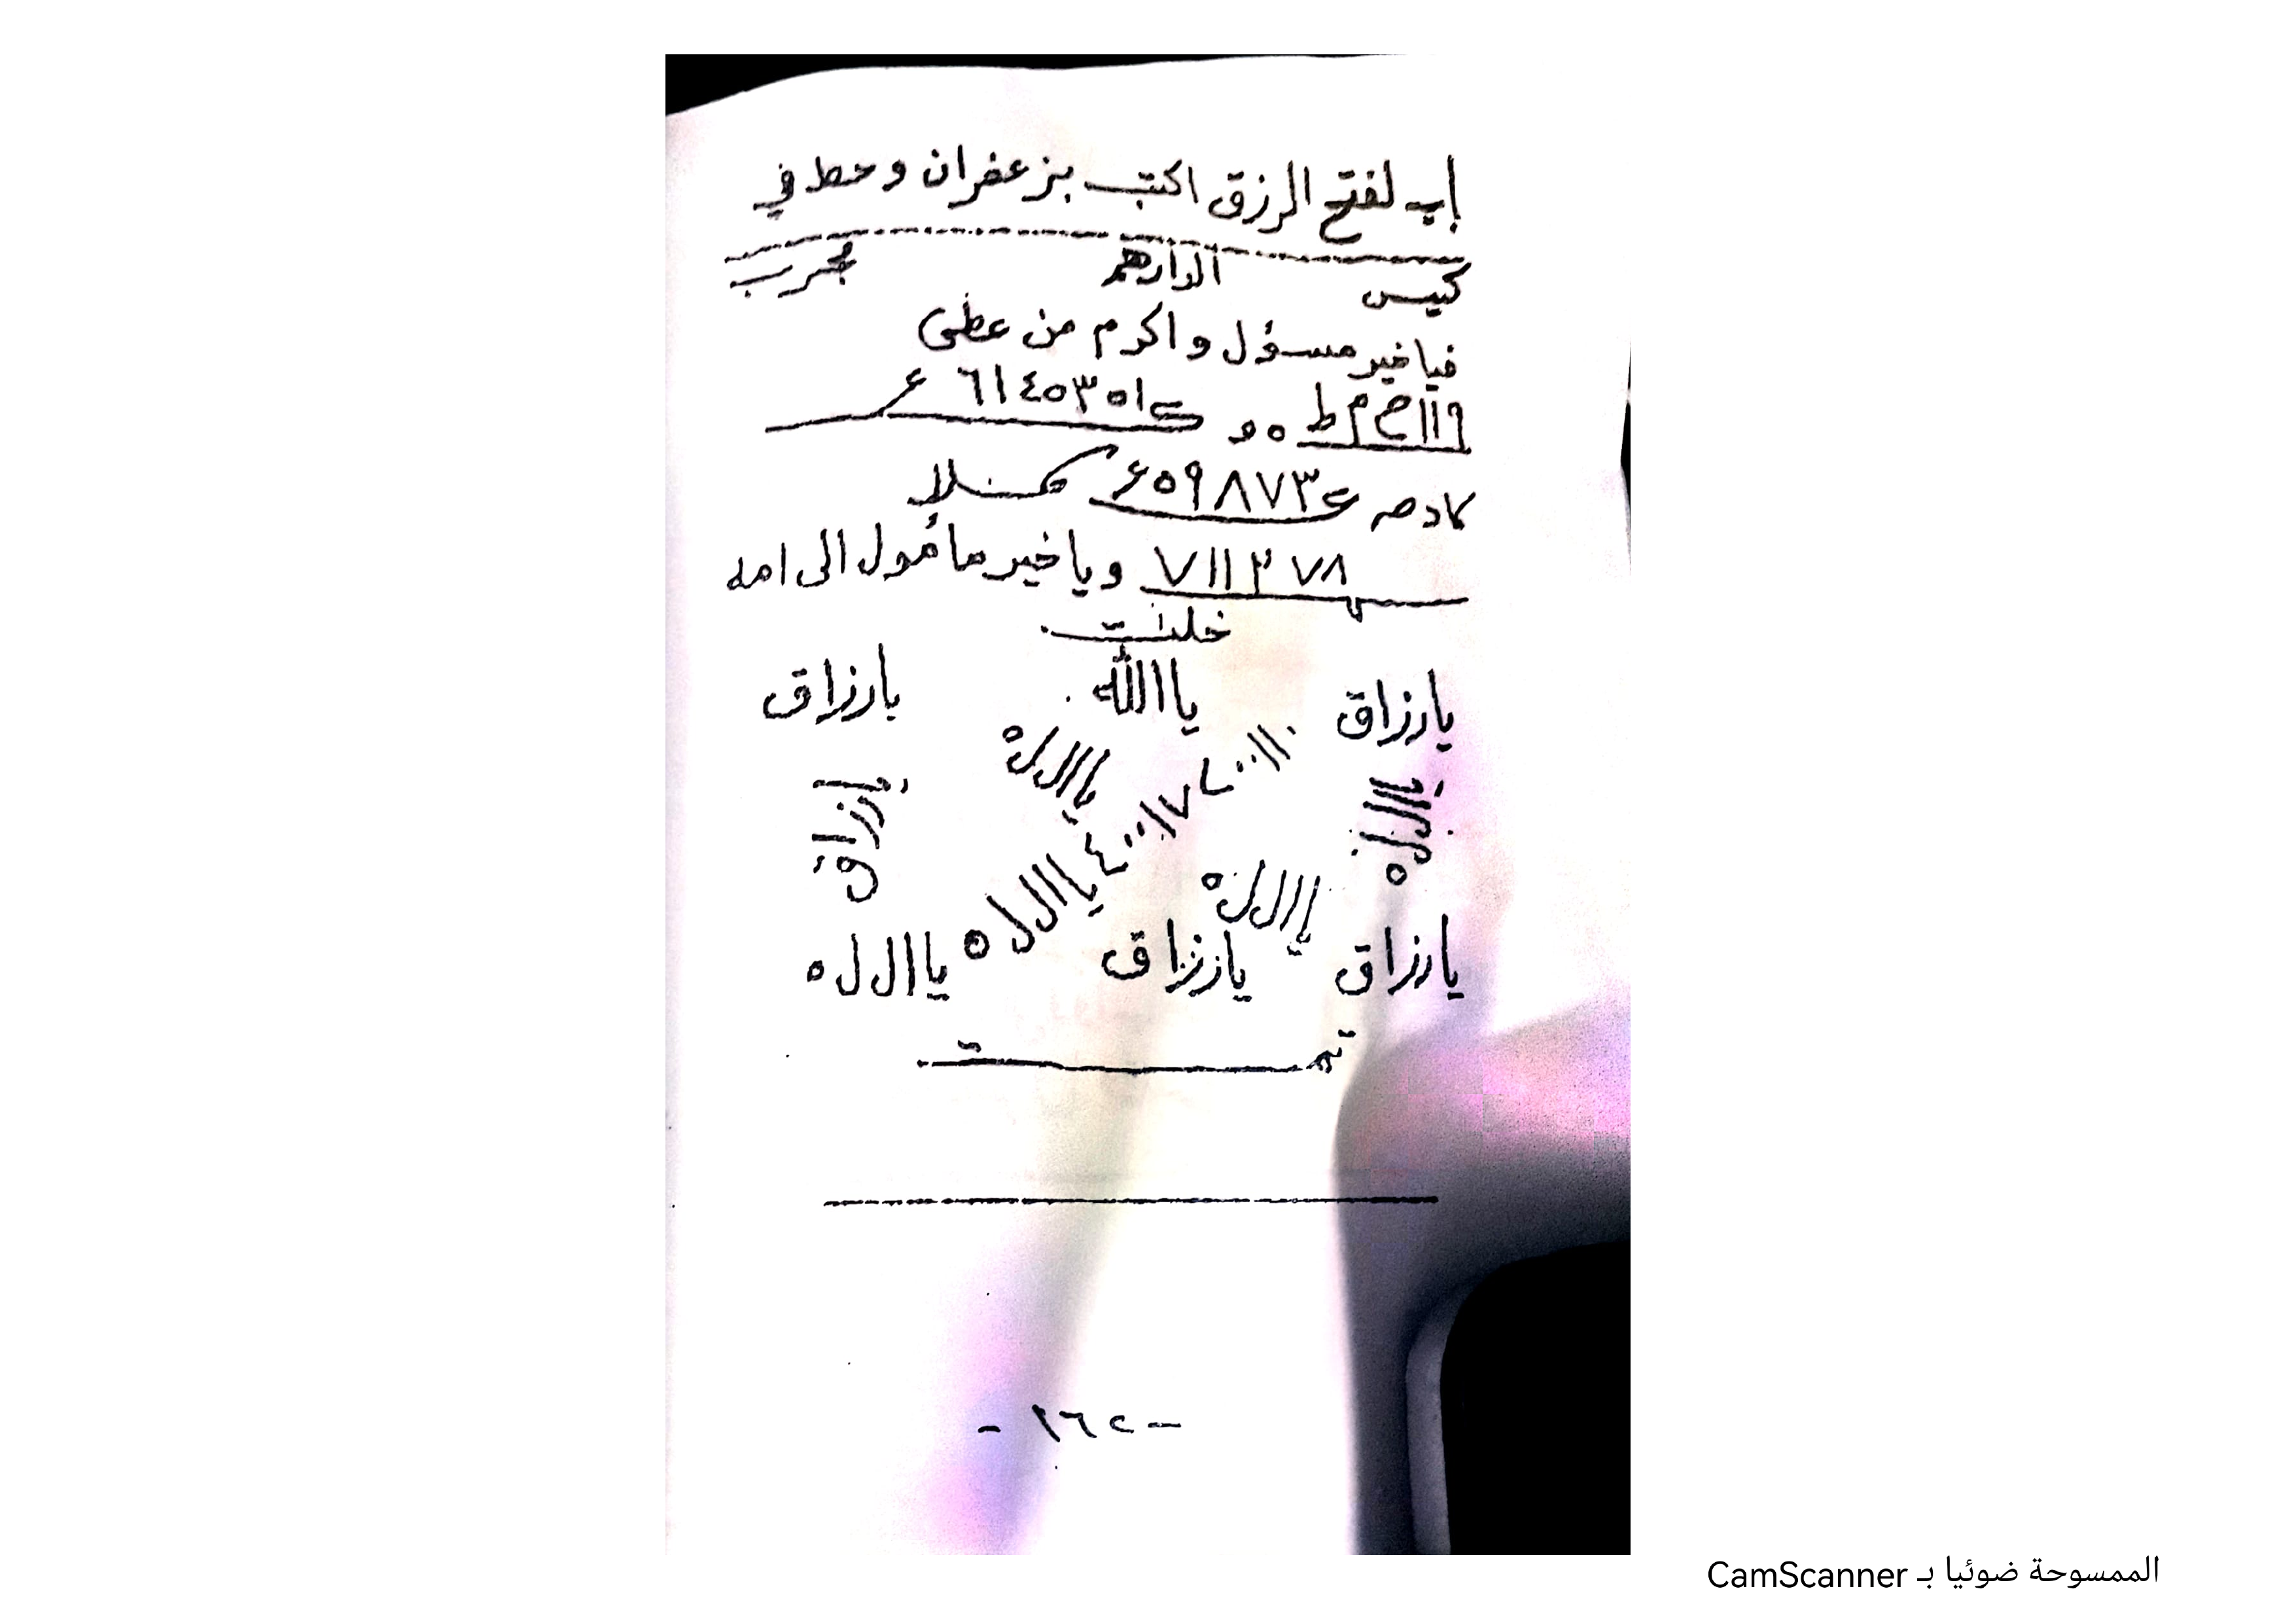 إب لفتح الرزق اكتب بزعفران وحط في
كيس الدارهم مجرب
فياخير مسؤل واكرم من عطى
١١٩ح م ط ٥ و ١٤٥٣٥١٦ ع
كادهـ ٦٥٩٨٧٣
٧١١٣٧٨ وياخير مأمول الى امه
خلت
يارزاق ياالله يارزاق
ياال ل ه
ياال ل ه يارزاق
٤٠٠١٧
ياال ل ه ياال ل ه
يارزاق يارزاق ياال ل ه
تمت
- ١٦٢ -
الممسوحة ضوئيا بـ CamScanner